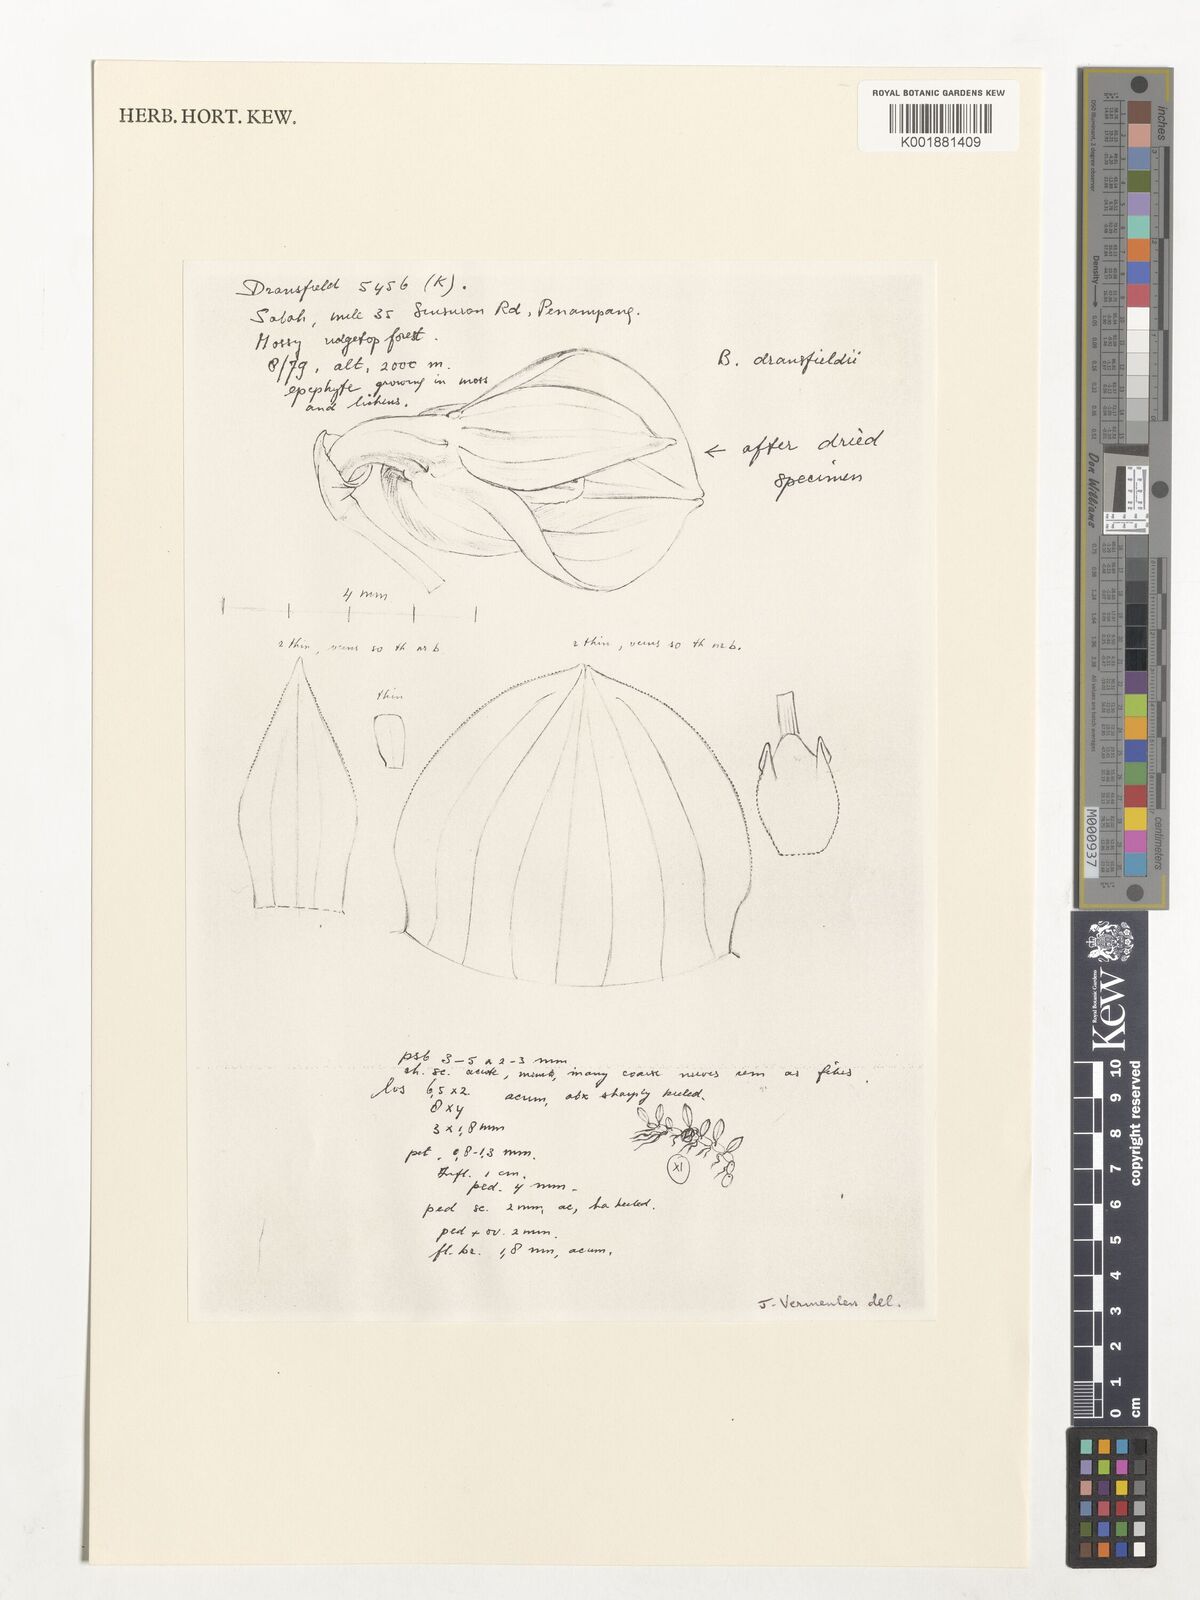 HERB. HORT. KEW.
ROYAL BOTANIC GARDENS KEW
K001881409
Dransfield 5456 (K).
Sabah, mile 35 Sinsuron Rd, Penampang.
Mossy ridgetop forest.
8/79, alt, 2000 m.
epephyte growing in moss
and lichens.
B. dransfieldii
← after dried
specimen
4 mm
2 thin, veins so th
thin
2 thin, veins so th
psb 3-5 x 2-3 mm
sc. acute, many coarse nerves rem as fibres.
lvs 6,5 x 2
acum, abx sharply keeled.
8 x 4
3 x 1,8 mm
pet. 0,8-1,3 mm.
Infl. 1 cm.
ped. 4 mm.
ped sc. 2 mm, ac, keeled.
ped + ov. 2 mm.
fl. br. 1,8 mm, acum.
XI
J. Vermeulen del.
inches
centimeters
Density
Don Williams
M000937
Kew
Royal Botanic Gardens
copyright reserved
0 1 2 3 4 5 6 7 8 9 10
cm